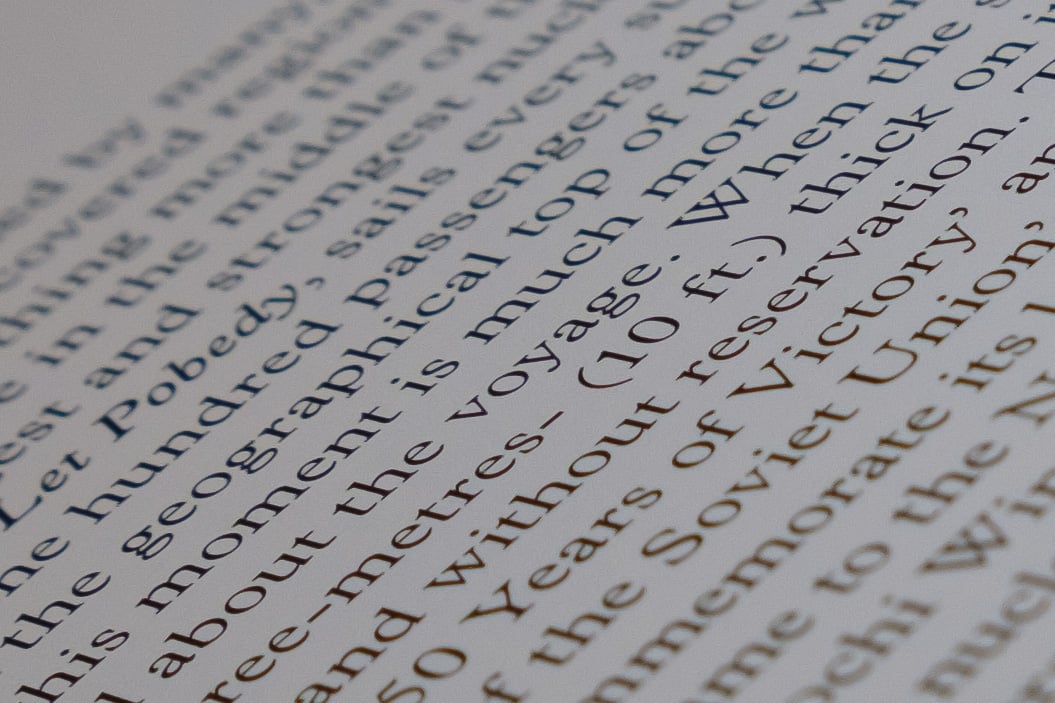 by many
covered region
thing more than
in the middle of th
est and strongest nucl
Let Pobedy, sails every su
ne hundred passengers abo
the geographical top of the w
this moment is much more than
l about the voyage. When the s
ree-metres- (10 ft.) thick on i
and without reservation. T
50 Years of Victory’ an
f the Soviet Union’
mmemorate its l
me to the N
ochi Win
nucle